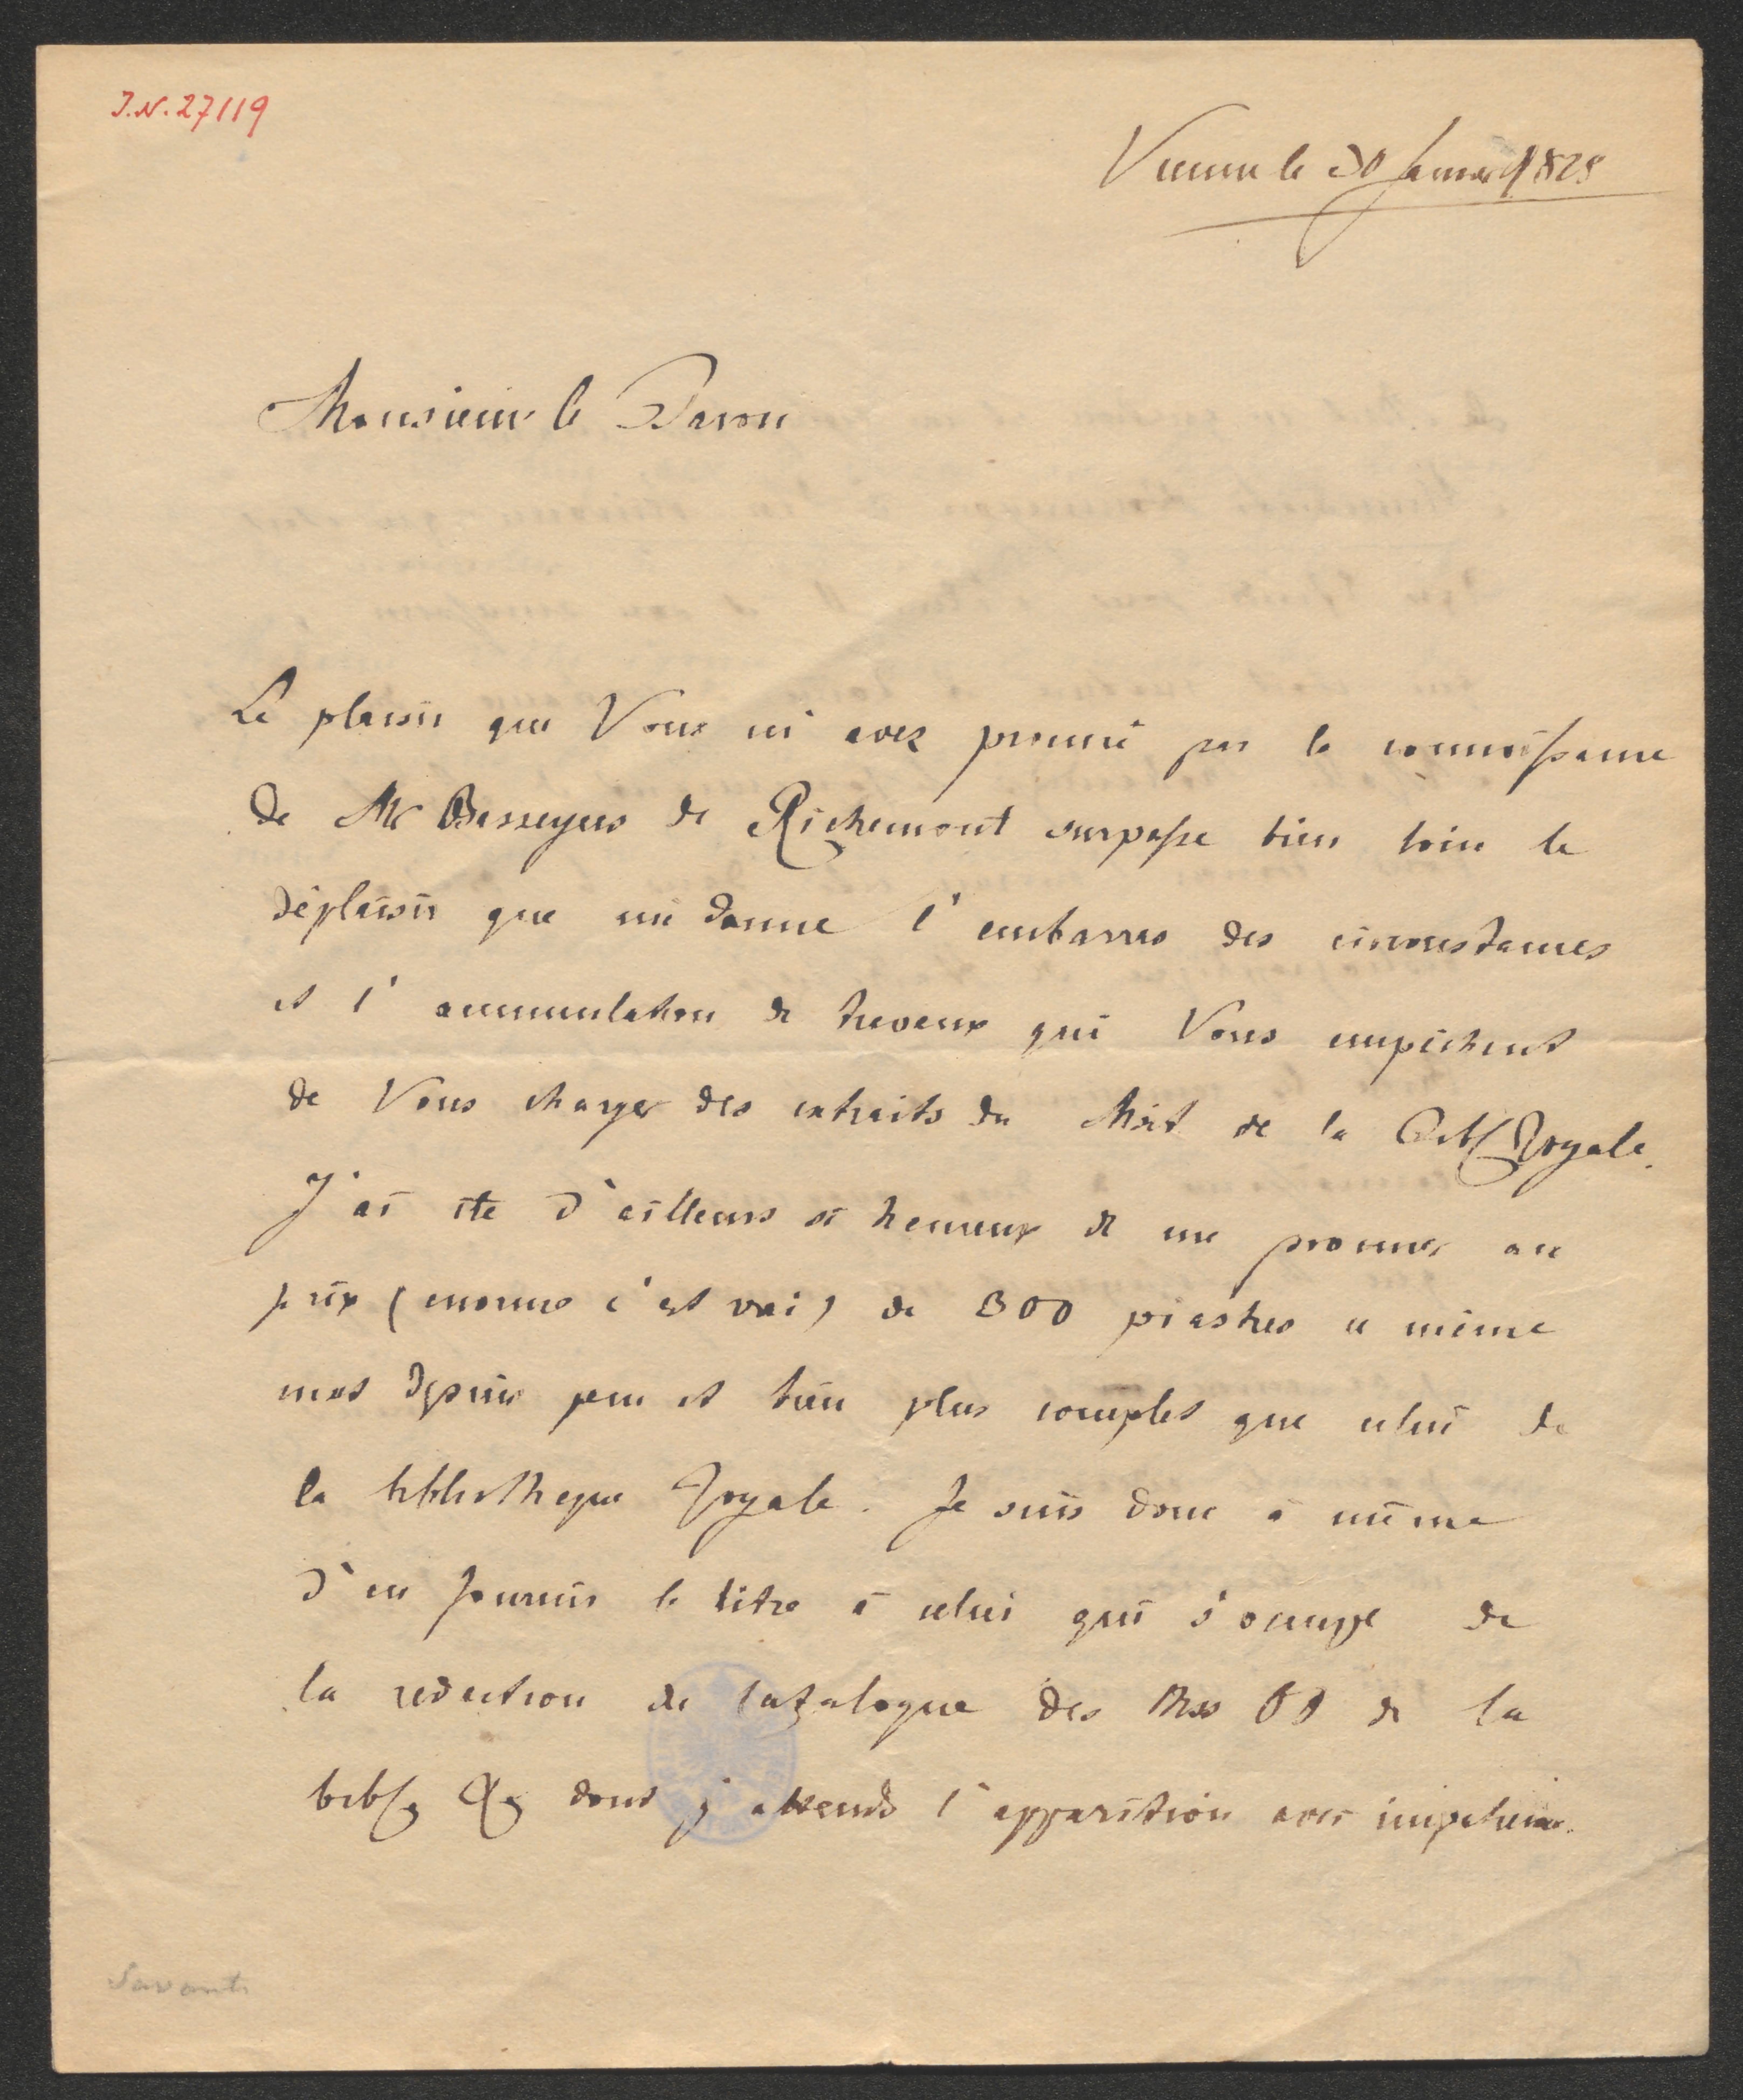 J.N. 27119
Vienne le 30 Janvier 1828
Monsieur le Baron
Le plaisir que Vous m'avez procuré par la connoissance
de Mr Basseyns de Richemont surpasse bien loin le
déplaisir que me donne l'embarras des circonstances
et l'accumulation de travaux qui Vous empêchent
de Vous charger des extraits du Msst de la Bibl Royale.
J'ai eté d'ailleurs si heureux de me procurer au
prix (enorme c'est vrai) de 300 piastres ce même
msst depuis peu et bien plus complet que celui de
la bibliotheque Royale. Je suis donc à même
d'en fournir le titre à celui qui s'occupe de
la redaction de Catalogue des Mss OO de la
bibl R dont j'attends l'apparition avec impatience.
Savants